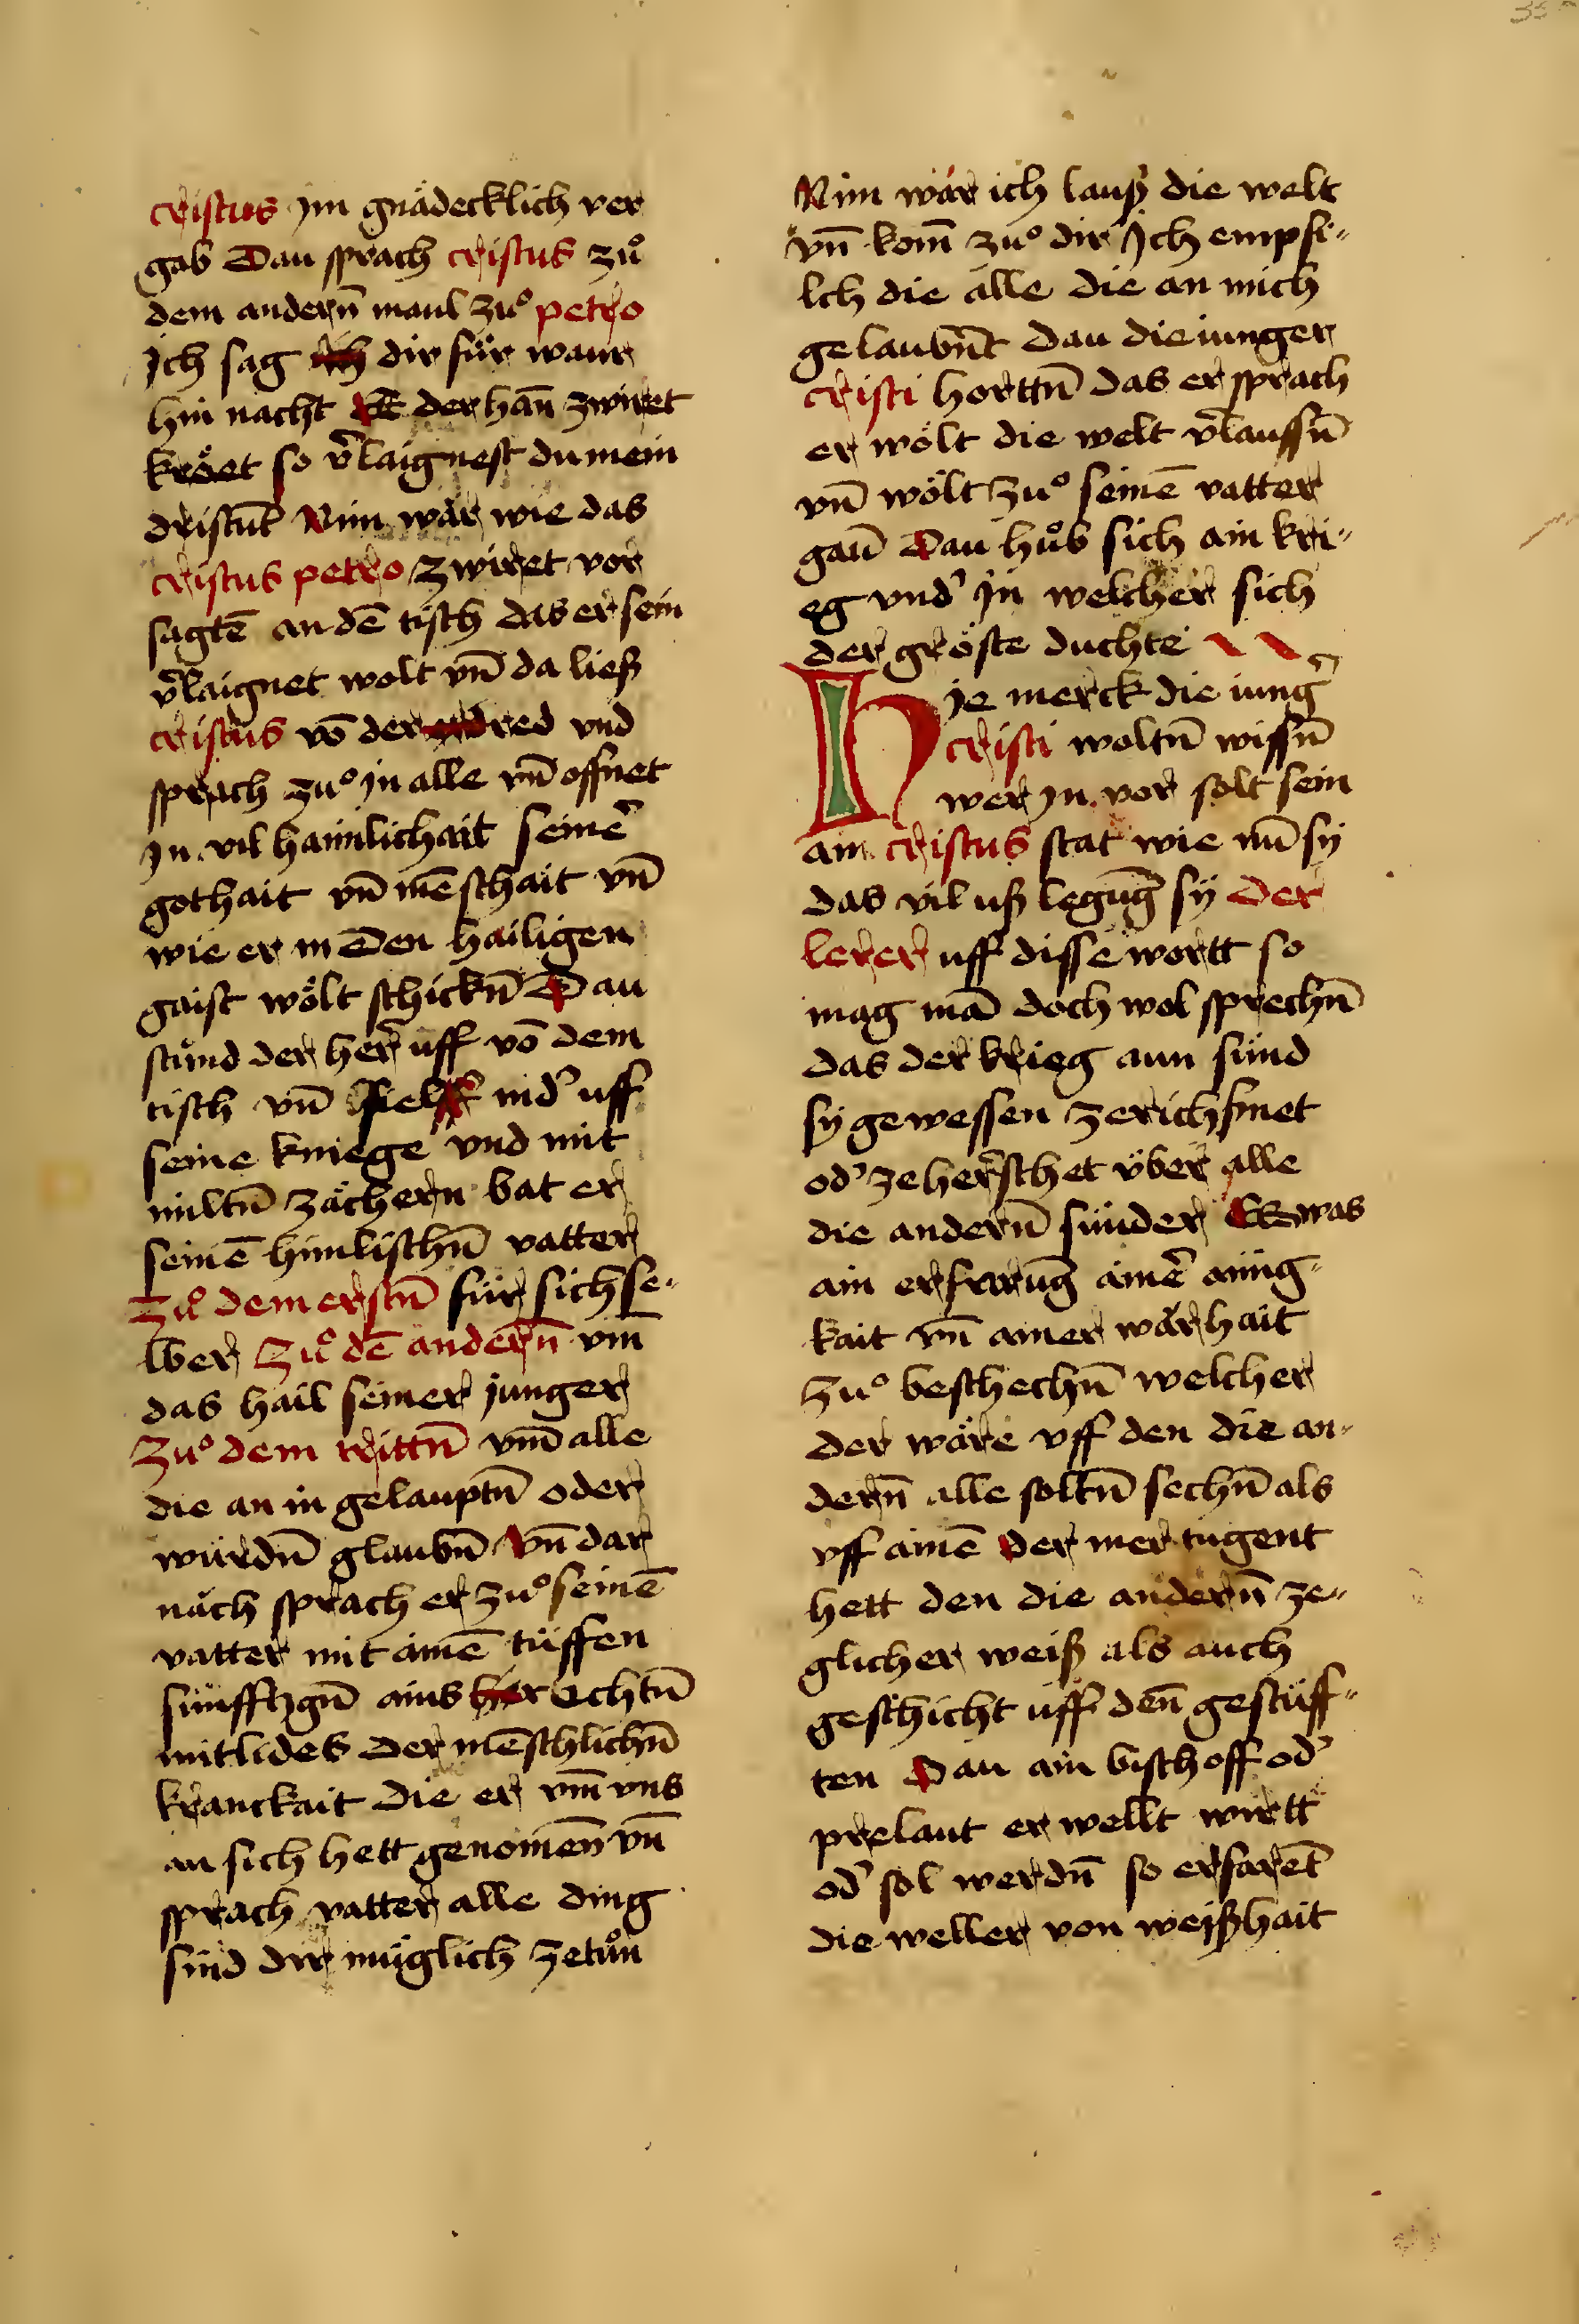 cristus jm gnädecklich ver
gab Dau sprach cristus zuͦ
dem andern̄ maul zuͦ petro
Jch sag dir für waur
hin nacht EE der han̄ zwiret
kröet so v̄laignest du mein
dristūt Nim wär wie das
cristus petro zwiret vor
sagtē an dē tisch das er sein
v̄laignet wolt vn̄ da ließ
cristus vō der red vnd
sprach zuͦ jn alle vn̄ offnet
jn vil haimlichait seineˀ
gothait vn̄ mēschait vn̄
wie er in den hailigen
gaist wölt schickn̄ Dau
stuͦnd der her uff vō dem
tisch vn̄ fiel nidˀ uff
seine kniege vnd mit
miltn̄ zächern bat er
seinē himlischn̄ vatter
Zuͦ dem erstn̄ für sich se-
lber Zuͦ dē andern̄ vm̄
das hail seiner junger
Zuͦ dem trittn̄ vm̄ alle
die an in gelauptn̄ oder
würdn̄ glaubn̄ vn̄ dar
näch sprach er zuͦ seinē
vatter mit aimē tüffen
sünfftzgn̄ ains rechtn̄
mitlides der mēschlichn̄
kranckait die er vm̄ vns
an sich hett genomen̄ vn̄
sprach vatter alle ding
sind dir müglich zetuͦn
Nim wär ich lauß die welt
vn̄ kom̄ zuͦ dir Jch empfi-
lch die alle die an mich
gelaubn̄t Dau die iunger
cristi horttn̄ das er sprach
er wölt die welt v̄laussn̄
vn̄ wölt zuͦ seinē vatter
gan̄ Dau huͦb sich ain kri-
eg vndˀ jn welcher sich
der gröste duchte
Hje merck die iungˀ
cristi woltn̄ wissn̄
wer jn vor solt sein
an cristus stat wie nū sy
das vil uß legūg sy der
lerer uff disse wortt so
mag mā doch wol sprechn̄
das der krieg aun sünd
sy gewessen zerichsnet
odˀ ze herschet über alle
die andern̄ sunder Es was
ain erfarūg aimeˀ ainig-
kait vn̄ ainer wärhait
zuͦ beschechn̄ welcher
der wäre vff den die an-
dern̄ alle soltn̄ sechn̄ als
vff aimē der mer tugent
hett den die andern̄ ze-
glicher weiß als auch
geschicht uff den̄ gestüff-
ten Dau ain bischoff odˀ
prelaut er wellt wirtt
odˀ sol werdn̄ so erfaret
die weller von weißhait